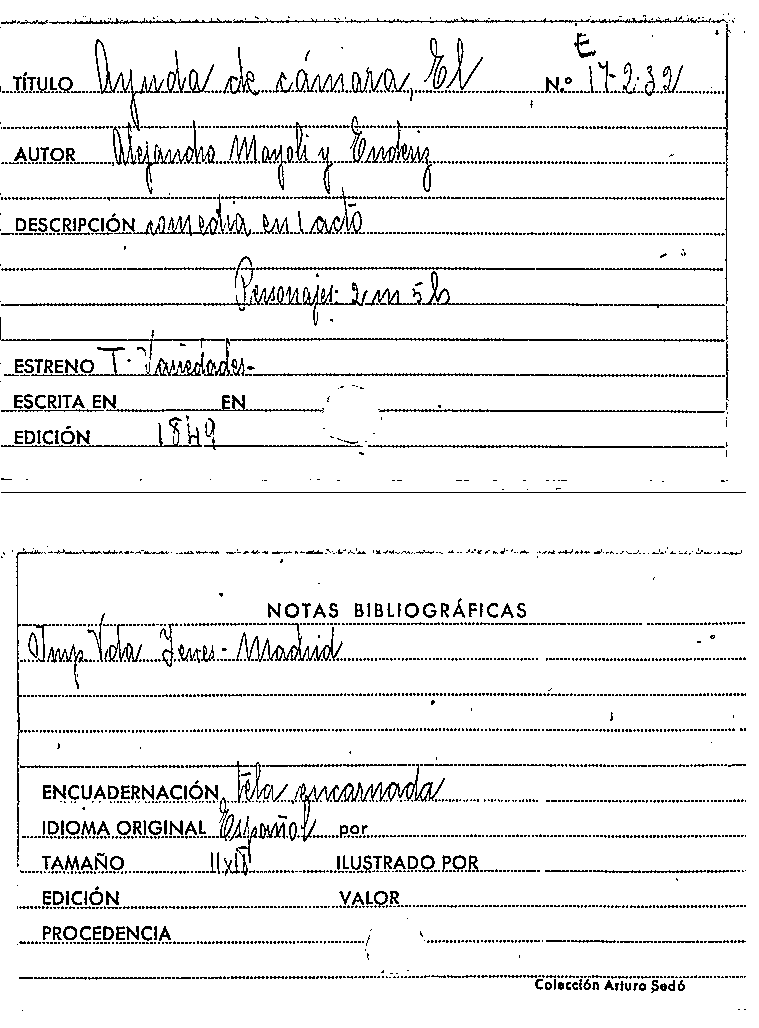 E
TÍTULO Ayuda de cámara, El N.º 17-2-32
AUTOR Alejandro Mayoli y Enderiz
DESCRIPCIÓN comedia en 1 acto
Personajes: 2 m 5 h
ESTRENO T. Variedades-
ESCRITA EN EN
EDICIÓN 1849
NOTAS BIBLIOGRÁFICAS
Imp Vda Yenes - Madrid
ENCUADERNACIÓN tela encarnada
IDIOMA ORIGINAL Español por
TAMAÑO ILUSTRADO POR
EDICIÓN VALOR
PROCEDENCIA
Colección Arturo Sedó